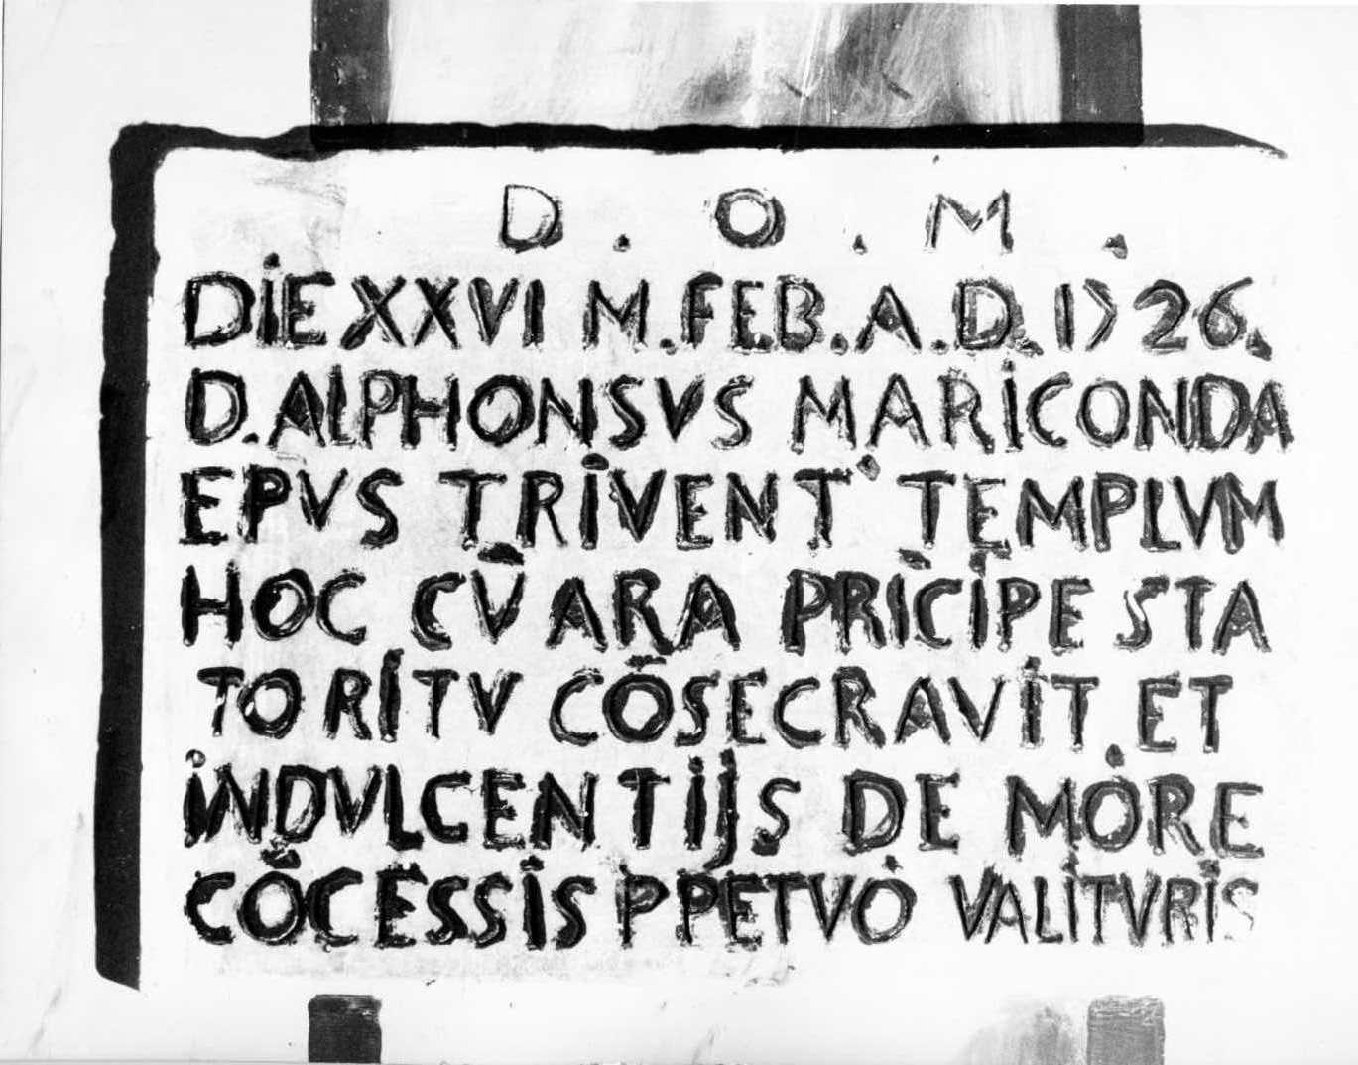 D . O . M .
DiE XXVI M . FEB . A . D . 1726 .
D. ALPHONSVS MARiCONDA
EPVS TRiVENT' TEMPLVM
HOC CV̄ ARA PRĪCiPE STA
TO RiTV CŌSECRAViT ET
iNDVLCENTijS DE MORE
CŌCESSiS PPETVO VALiTVRiS